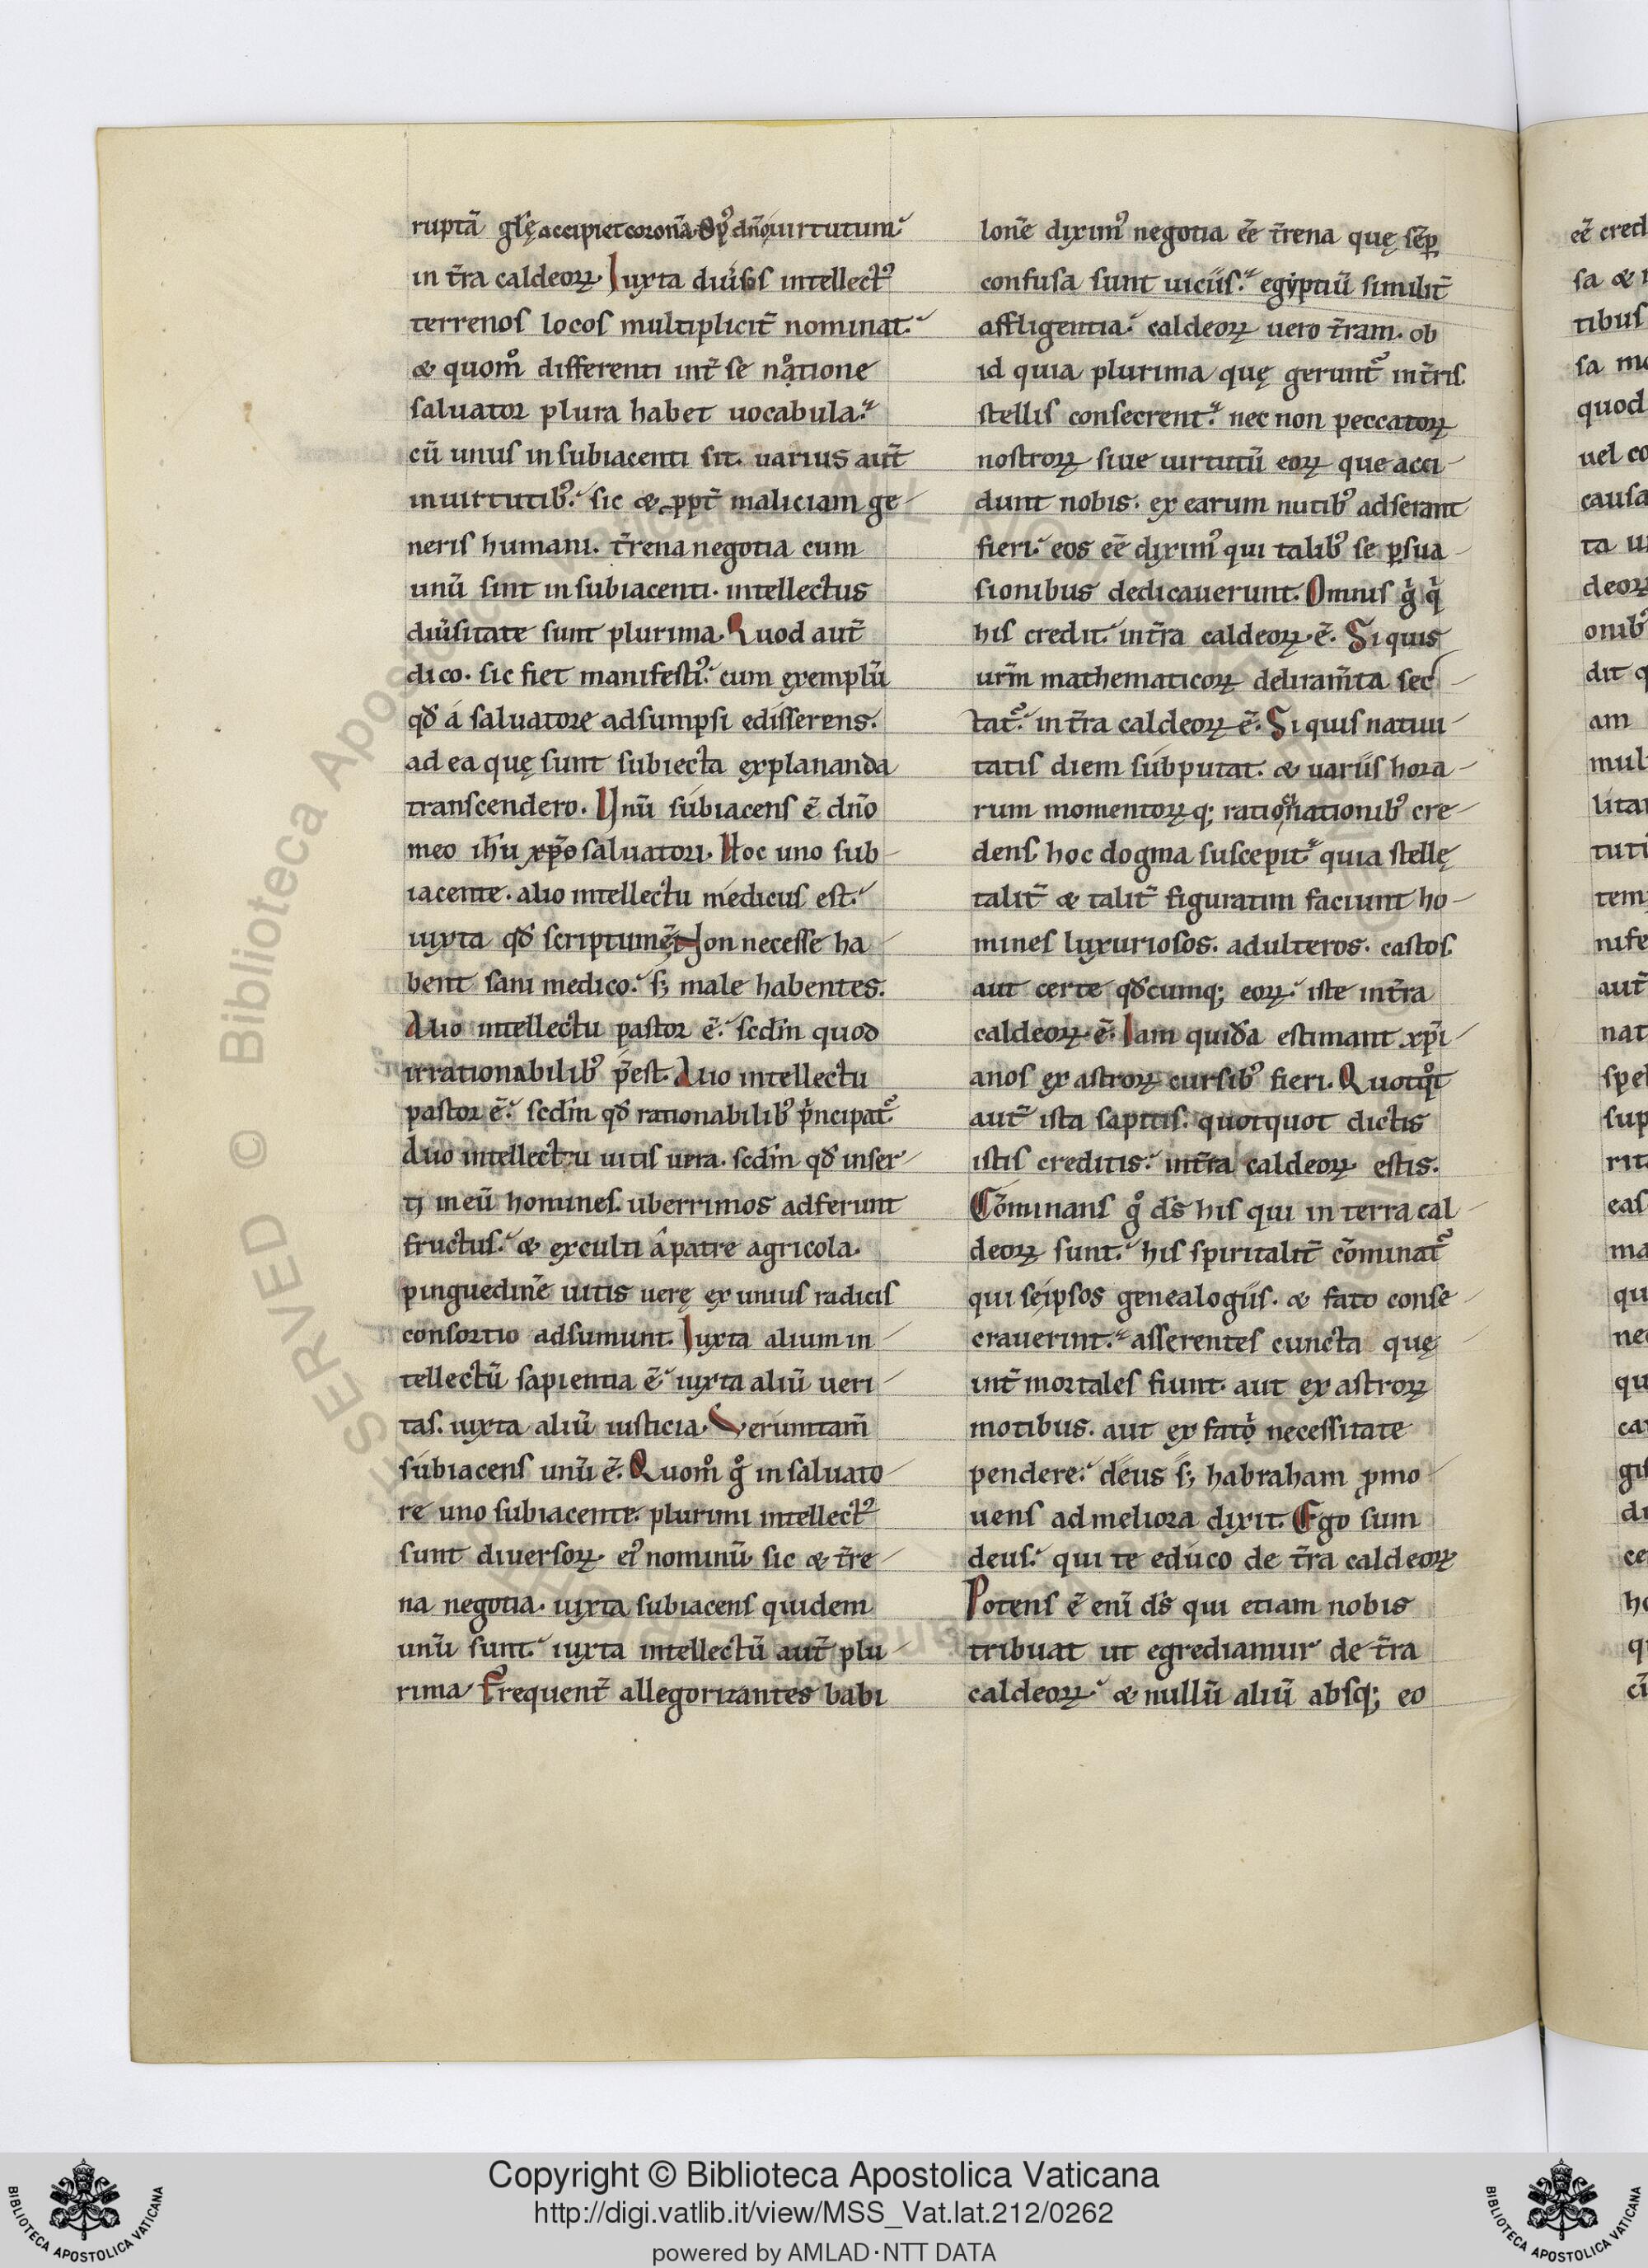 ruptā gl̄ę accipiet coronā. Op᷒ dn̄o uirtutum
in t̄ra caldeoꝝ. Iuxta diuīsos intellect᷒
terrenos locos multiplicit̄ nominat.
& quom̊ differenti int̄ se nꝍtione
saluator plura habet uocabula.
cū unus in subiacenti sit. uarius aut̄
in uirtutib᷒. sic & ꝓpt̄ maliciam ge-
neris humani. t̄rena negotia cum
unū sint in subiacenti. intellectus
diūsitate sunt plurima. Quod aut̄
dico. sic fiet manifesti᷒. cum exemplū
qd̄ á saluatore adsumpsi edisserens.
ad ea quę sunt subiecta explananda
transcendero. Unū subiacens ē dn̄o
meo ih̄u xp̄o saluatori. Hoc uno sub-
iacente. alio intellectu medicus est.
iuxta qd̄ scriptum ē. Non necesse ha-
bent sani medico. s; male habentes.
Alio intellectu pastor ē. scd̄m quod
irrationabilib᷒ p̄est. Alio intellectu
pastor ē. scd̄m qd̄ rationabilib᷒ pͥncipat᷒.
Alio intellectu uitis uera. scd̄m qd̄ inser-
ti in eū homines. uberrimos adferunt
fructus. & exculti â patre agricola.
pinguedinē uitis uerę ex unius radicis
consortio adsumunt. Iuxta alium in-
tellectū sapientia ē. iuxta aliū ueri-
tas. iuxta aliū iusticia. Veruntam̄
subiacens unū ē. Quom̊ g̊ in saluato-
re uno subiacente. plurimi intellect᷒
sunt diuersoꝝ. ei᷒ nominū. sic & t̄re-
na negotia. iuxta subiacens quidem
unū sunt. iuxta intellectū aut̄ plu-
rima. Frequent̄ allegorizantes babi
lonē dixim᷒ negotia eē t̄rena quę sēꝑ
confusa sunt uiciis. egẏptiū similit̄
affligentia. caldeoꝝ uero t̄ram. ob
id quia plurima quę gerunt᷒ in t̄ris
stellis consecrent. nec non peccatoꝝ
nostroꝝ siue uirtutū eoꝝ que acci-
dunt nobis. ex earum nutib᷒ adserant
fieri. eos eē dixim᷒ qui talib᷒ se ꝑsua-
sionibus dedicauerunt. Omnis gͥ qͥ
his credit. in t̄ra caldeoꝝ. ē. Si quis
ur̄m mathematicoꝝ deliram̄ta sec-
tat᷒. in t̄ra caldeoꝝ ē. Si quis natiui-
tatis diem subputat. & uariis hora-
rum momentoꝝq; ratiocinationib᷒ cre-
dens. hoc dogma suscepit. quia stellę
talit̄ & talit̄ figuratim faciunt ho-
mines luxuriosos. adulteros. castos.
aut certe qd̄cumq; eoꝝ. iste in t̄ra
caldeoꝝ. ē. Iam quidā estimant xp̄i-
anos ex astroꝝ cursib᷒ fieri. Quotqͦt
aut̄ ista sapitis. quotquot dictis
istis creditis. in t̄ra caldeoꝝ estis.
Cōminans g̊ ds̄ his qui in terra cal-
deoꝝ sunt. his spiritalit̄ cōminat᷒
qui seipsos genealogiis. & fato conse-
crauerint. asserentes cuncta quę
int̄ mortales fiunt. aut ex astroꝝ
motibus. aut ex fatꝍ necessitate
pendere. deus s; habraham ꝓmo-
uens ad meliora dixit. Ego sum
deus. qui te edúco de t̄ra caldeoꝝ
Potens ē enī ds̄ qui etiam nobis
tribuat ut egrediamur de t̄ra
caldeoꝝ. & nullū aliū absq; eo
eē cred
sa & 
tibus
sa
quod
uel co
causa
ta
deoꝝ
onib᷒
dit q
am
mul
lita
tuti
tem
nife
aut̄
nat
spe
sup
rit
eas
ma
qu
ne
qu
ca
gi
di
ce
ho
q
cī
© Biblioteca Apostolica Vaticana ALL RIGHTS RESERVED
Copyright © Biblioteca Apostolica Vaticana
http://digi.vatlib.it/view/MSS_Vat.lat.212/0262
powered by AMLAD·NTT DATA
BIBLIOTECA APOSTOLICA VATICANA
BIBLIOTECA APOSTOLICA VATICANA